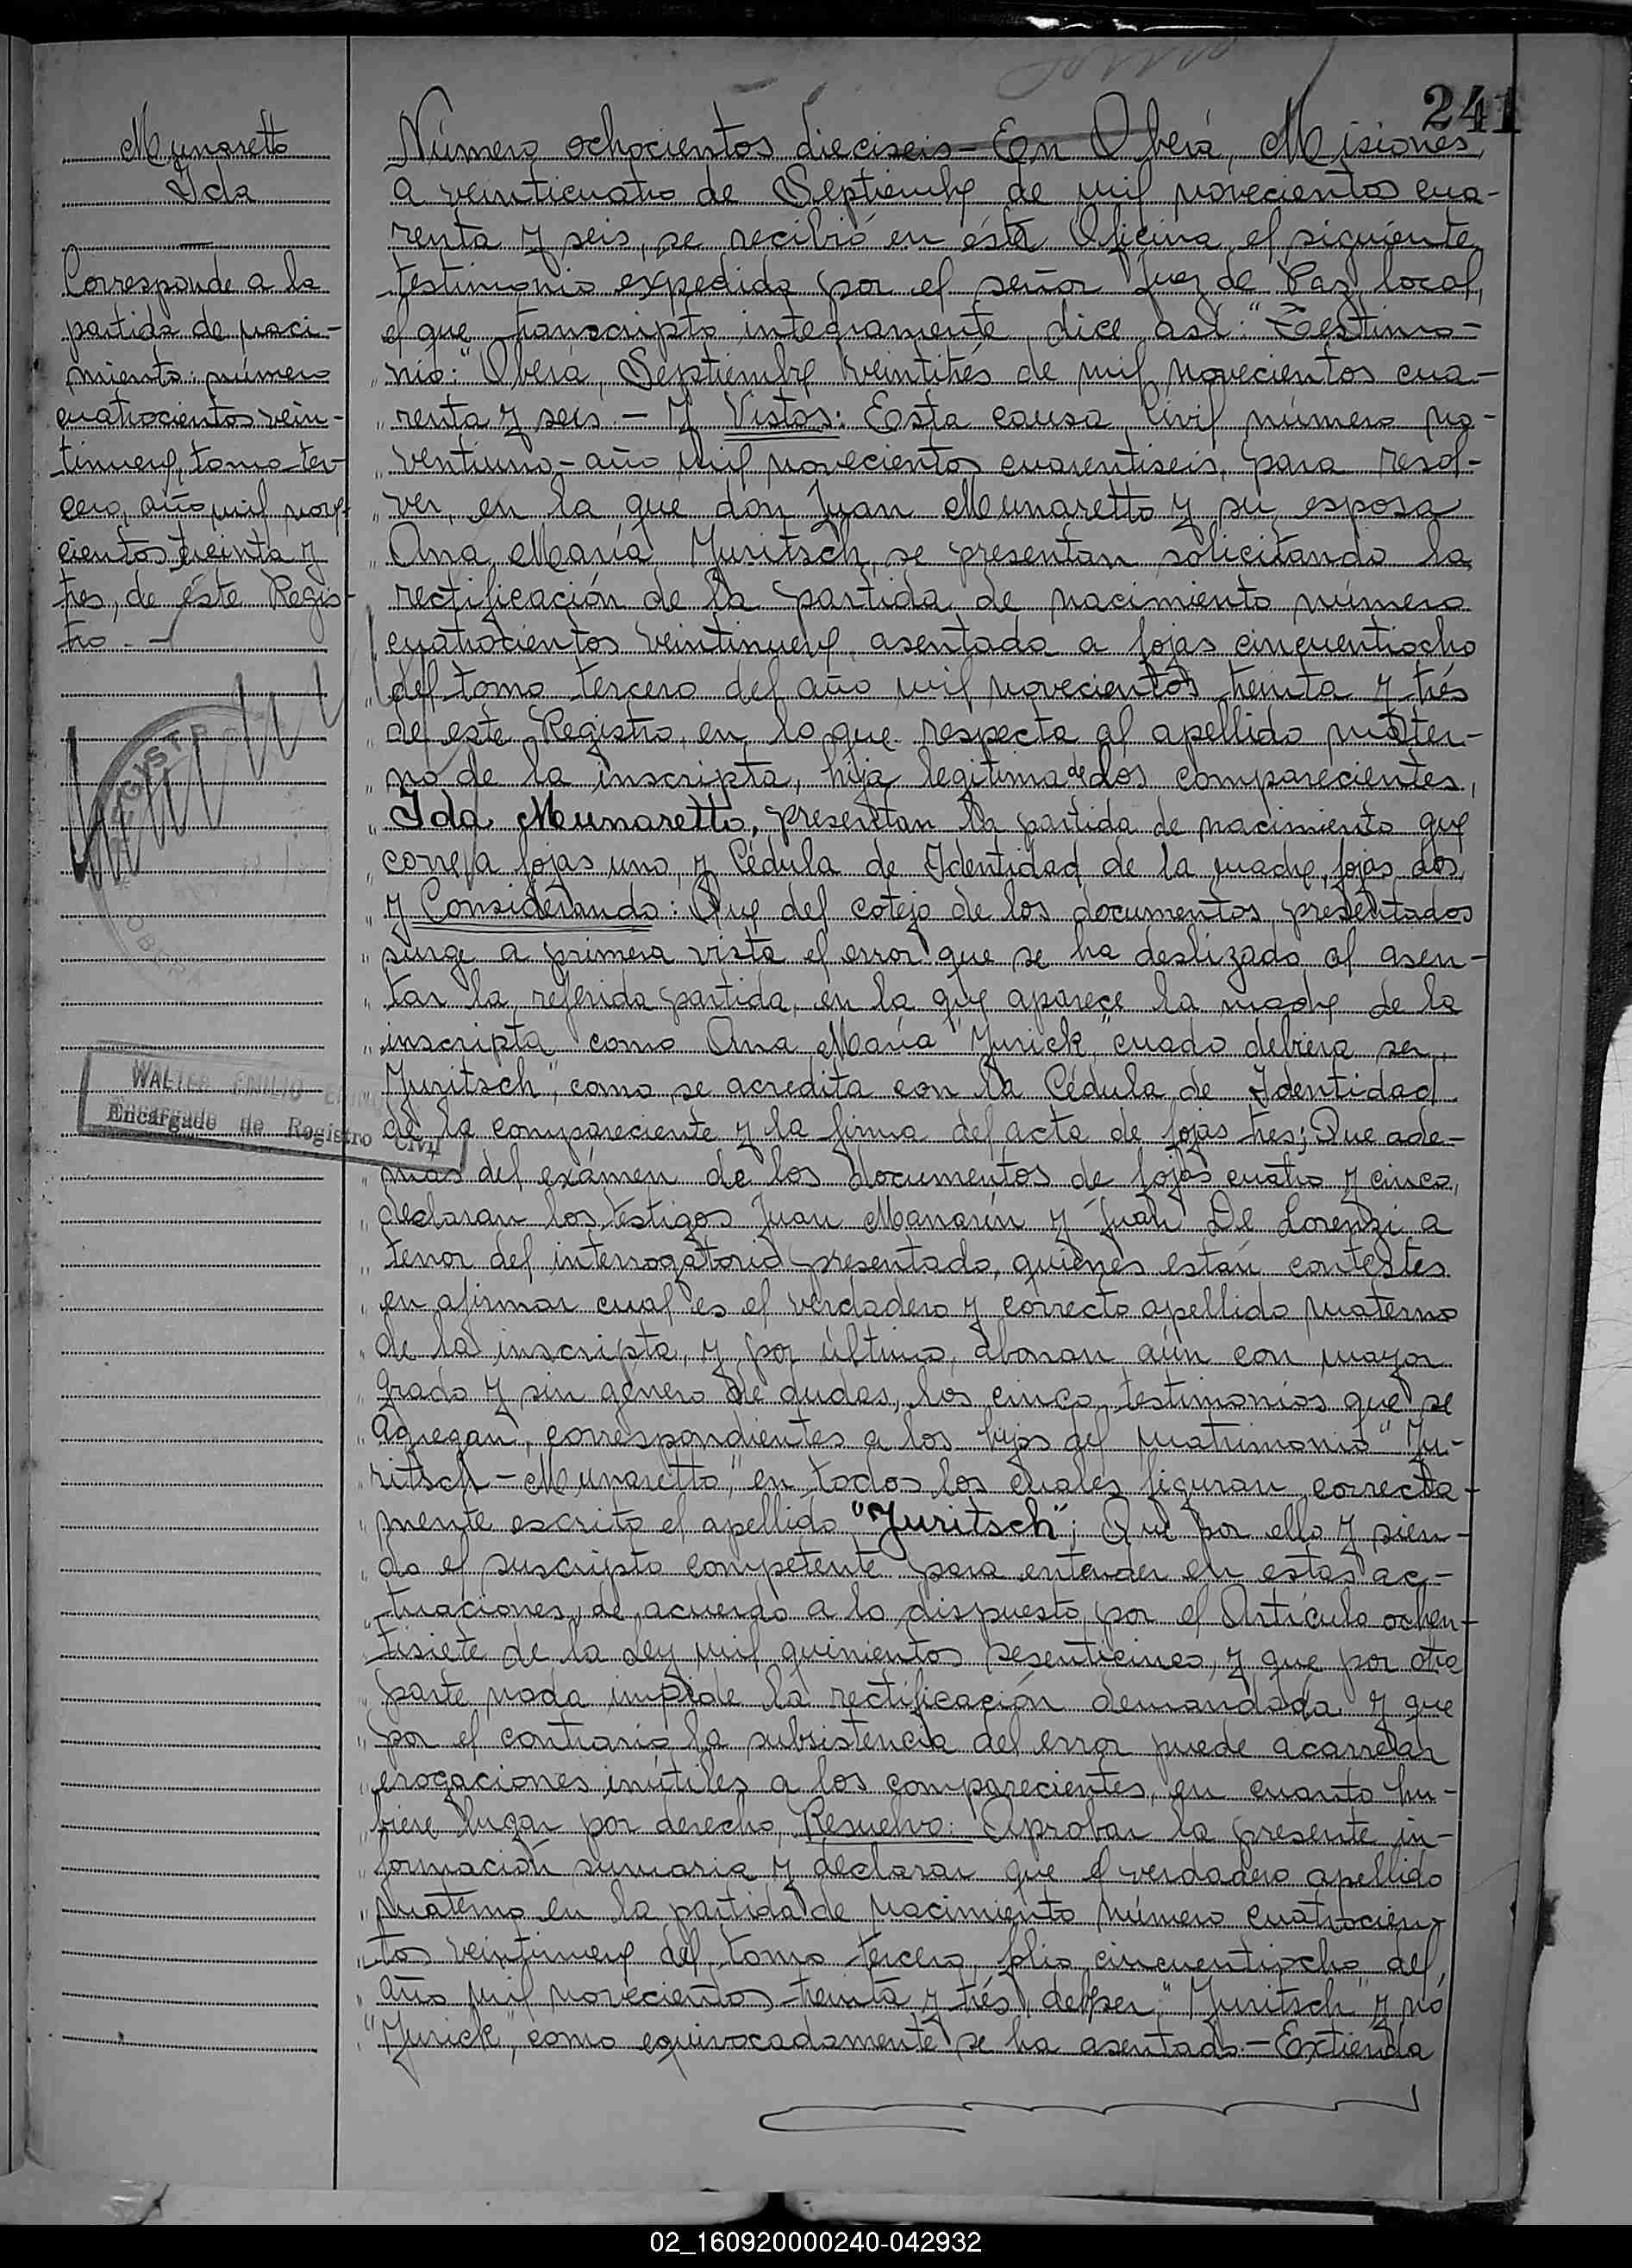 241
Munaretto
Ida
Corresponde a la
partida de naci-
miento número
cuatrocientos vein-
tinueve, tomo ter-
cero, año mil nove-
cientos treinta y
tres, de éste Regis-
tro.-
REGISTRO
OBERA
WALTER EMILIO
Encargado de Registro Civil
Número ochocientos dieciseis - En Oberá, Misiones,
a veinticuatro de Septiembre de mil novecientos cua-
renta y seis, se recibió en ésta Oficina el siguiente
testimonio expedido por el señor Juez de Paz local,
el que transcripto integramente dice así: "Testimo-
" nio: "Oberá, Septiembre veintitrés de mil novecientos cua-
" renta y seis.- Y Vistos: Esta causa Civil número no-
" ventiuno - año mil novecientos cuarentiseis, para resol-
" ver, en la que don Juan Munaretto y su esposa
" Ana María Juritsch, se presentan solicitando la
" rectificación de la partida de nacimiento número
" cuatrocientos veintinueve, asentada a fojas cincuentiocho
" del tomo tercero del año mil novecientos treinta y trés
" de este Registro, en lo que respecta al apellido mater-
" no de la inscripta, hija legitima de los comparecientes,
" Ida Munaretto, presentan la partida de nacimiento que
" corre a fojas uno, y Cédula de Identidad de la madre, fojas dos,
" y Considerando: Que del cotejo de los documentos presentados
" surge a primera vista el error que se ha deslizado al asen-
" tar la referida partida, en la que aparece la madre de la
" inscripta como Ana María "Jurick", cuado debiera ser
" Juritsch", como se acredita con la Cédula de Identidad
" de la compareciente y la firma del acta de fojas tres; Que ade-
" mas del exámen de los documentos de fojas cuatro y cinco,
" declaran los testigos Juan Manarin y Juan De Lorenzi a
" tenor del interrogatorio presentado, quienes están contestes
" en afirmar cual es el verdadero y correcto apellido materno
" de la inscripta, y por último, abonan aún con mayor
" grado y sin género de dudas, los cinco testimonios que se
" agregan, correspondientes a los hijos del matrimonio "Ju-
" ritsch - Munaretto", en todos los cuales figuran correcta-
" mente escrito el apellido "Juritsch"; Que por ello y sien-
" do el suscripto competente para entender en estas ac-
" tuaciones, de acuerdo a lo dispuesto por el Artículo ochen-
" tisiete de la Ley mil quinientos sesenticinco, y que por otra
" parte nada impide la rectificación demandada y que
" por el contrario la subsistencia del error puede acarrear
" erogaciones inútiles a los comparecientes, en cuanto hu-
" biere lugar por derecho, Resuelvo: Aprobar la presente in-
" formación sumaria y declarar que el verdadero apellido
" materno en la partida de nacimiento número cuatrocien-
" tos veintinueve del tomo tercero, folio cincuentiocho del
" año mil novecientos treinta y trés, debe ser "Juritsch" y no
" "Jurick", como equivocadamente se ha asentado.- Extienda
02_160920000240-042932